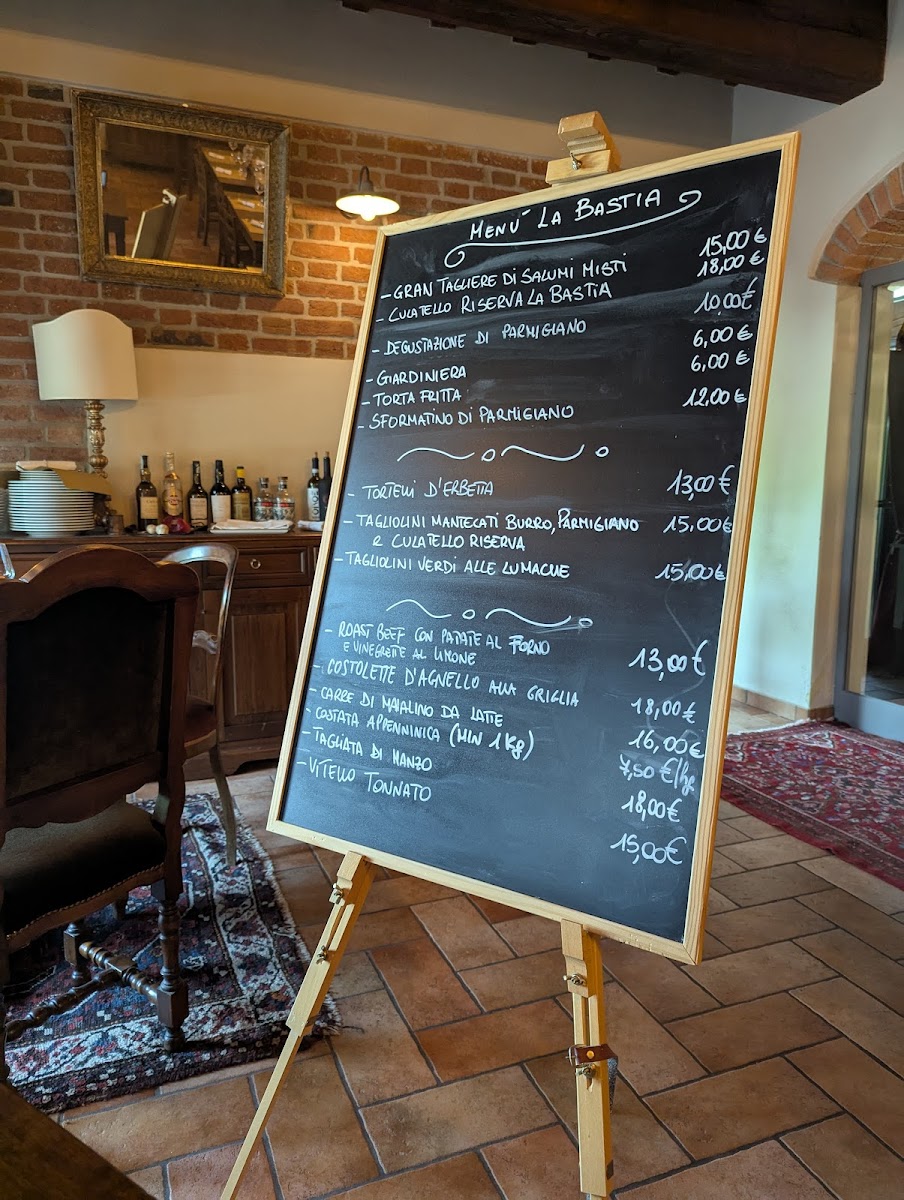 MENÚ LA BASTIA
- GRAN TAGLIERE DI SALUMI MISTI 15,00 €
- CULATELLO RISERVA LA BASTIA 18,00 €
- DEGUSTAZIONE DI PARMIGIANO 10,00 €
- GIARDINIERA 6,00 €
- TORTA FRITTA 6,00 €
- SFORMATINO DI PARMIGIANO 12,00 €
- TORTELLI D'ERBETTA 13,00 €
- TAGLIOLINI MANTECATI BURRO, PARMIGIANO 15,00 €
E CULATELLO RISERVA
- TAGLIOLINI VERDI ALLE LUMACHE 15,00 €
- ROAST BEEF CON PATATE AL FORNO
E VINEGRETTE AL LIMONE 13,00 €
- COSTOLETTE D'AGNELLO ALLA GRIGLIA 18,00 €
- CARRE DI MAIALINO DA LATTE 16,00 €
- COSTATA APPENNINICA (MIN 1 Kg) 7,50 €/hg
- TAGLIATA DI MANZO 18,00 €
- VITELLO TONNATO 15,00 €